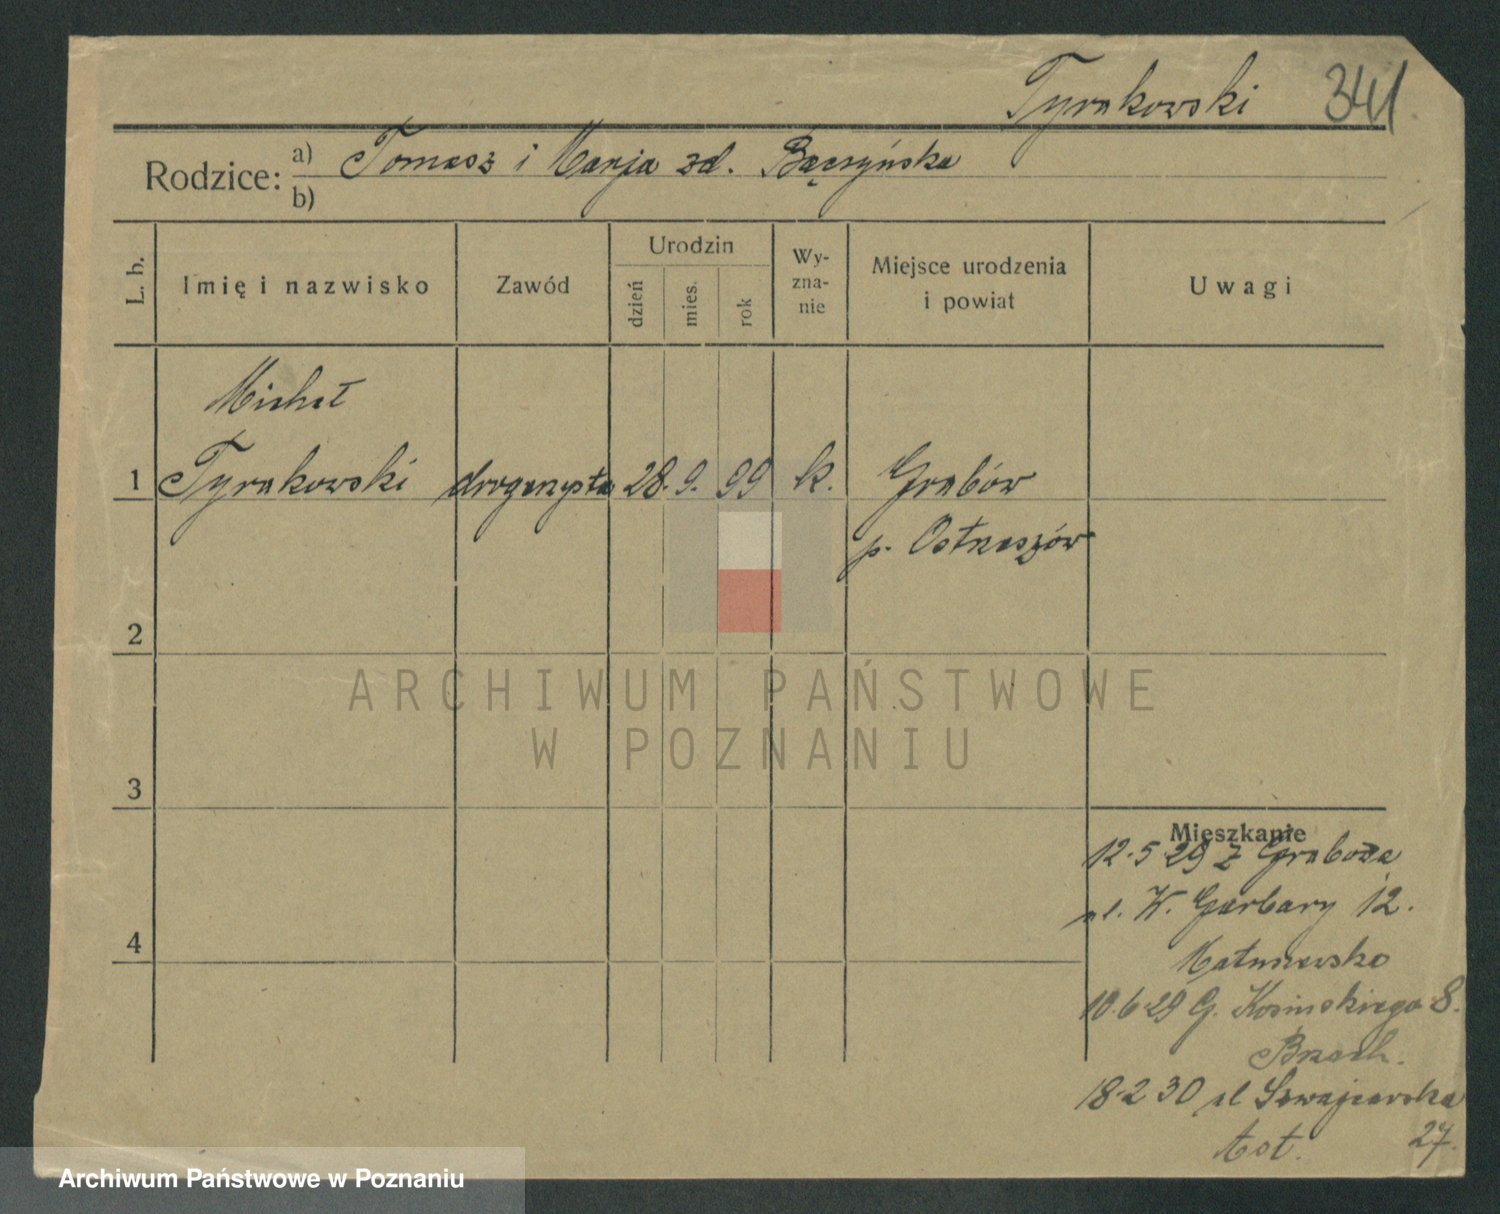 Tyrakowski 341
Rodzice: a) Tomasz i Marja zd. Bączyńska
b)
L. b. Imię i nazwisko Zawód Urodzin dzień mies. rok Wy-zna-nie Miejsce urodzenia i powiat Uwagi
Michał
1 Tyrakowski drogerzysta 28. 9. 99 k. Grabów
p. Ostrzeszów
2
ARCHIWUM PAŃSTWOWE
W POZNANIU
3
Mieszkanie
12.5 29 z Grabowa
ul. W. Garbary 12.
4
10.6 29 G. Kosińskiego 8.
18.2 30 ul Szwajcarska
27.
Archiwum Państwowe w Poznaniu